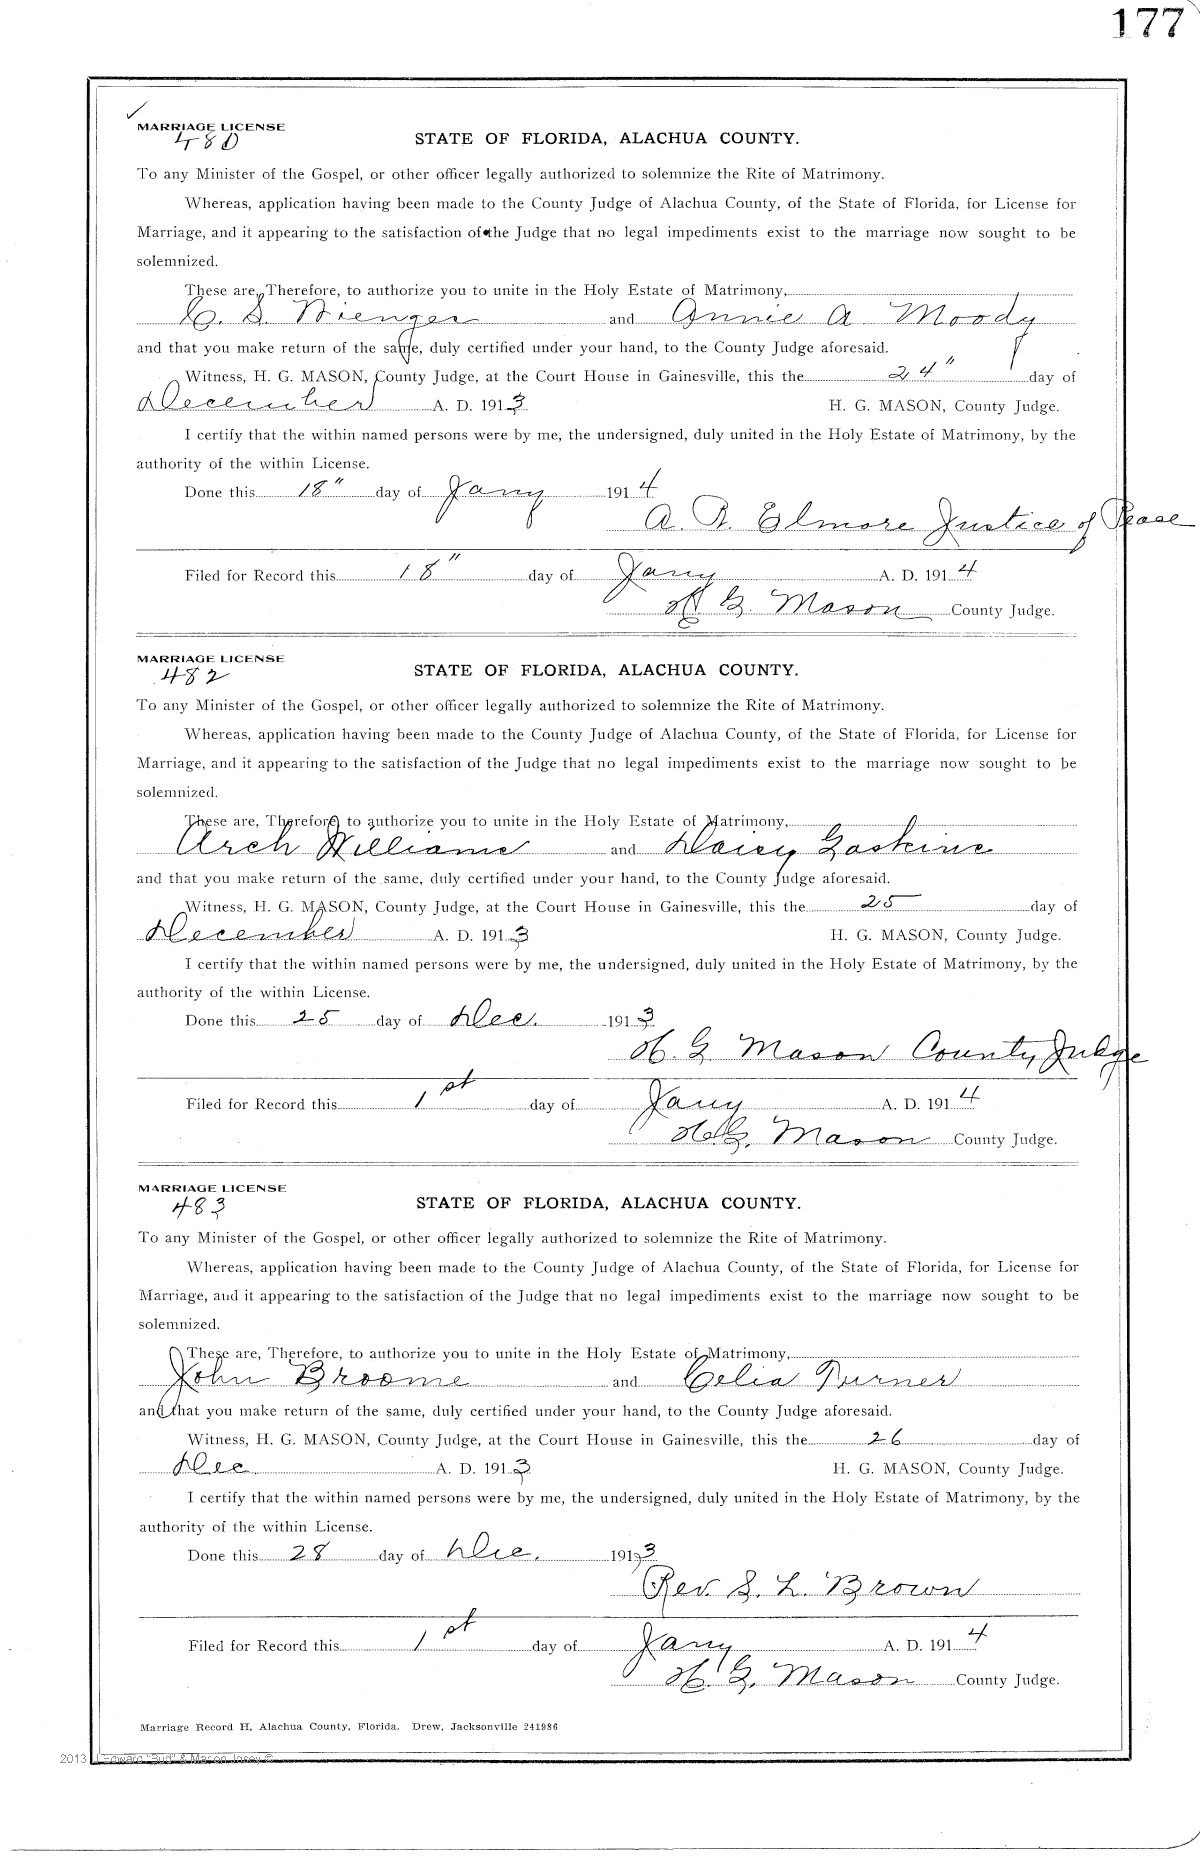 177
MARRIAGE LICENSE
480
STATE OF FLORIDA, ALACHUA COUNTY.
To any Minister of the Gospel, or other officer legally authorized to solemnize the Rite of Matrimony.
Whereas, application having been made to the County Judge of Alachua County, of the State of Florida, for License for
Marriage, and it appearing to the satisfaction of the Judge that no legal impediments exist to the marriage now sought to be
solemnized.
These are, Therefore, to authorize you to unite in the Holy Estate of Matrimony,
C. S. and Annie A Moody
and that you make return of the same, duly certified under your hand, to the County Judge aforesaid.
Witness, H. G. MASON, County Judge, at the Court House in Gainesville, this the 24" day of
December A. D. 1913 H. G. MASON, County Judge.
I certify that the within named persons were by me, the undersigned, duly united in the Holy Estate of Matrimony, by the
authority of the within License.
Done this 18" day of Jany 1914
A. R. Elmore Justice of Pease
Filed for Record this 18" day of Jany A. D. 1914
H G Mason County Judge.
MARRIAGE LICENSE
482
STATE OF FLORIDA, ALACHUA COUNTY.
To any Minister of the Gospel, or other officer legally authorized to solemnize the Rite of Matrimony.
Whereas, application having been made to the County Judge of Alachua County, of the State of Florida, for License for
Marriage, and it appearing to the satisfaction of the Judge that no legal impediments exist to the marriage now sought to be
solemnized.
These are, Therefore, to authorize you to unite in the Holy Estate of Matrimony,
Arch Williams and Daisy Gaskins
and that you make return of the same, duly certified under your hand, to the County Judge aforesaid.
Witness, H. G. MASON, County Judge, at the Court House in Gainesville, this the 25 day of
December A. D. 1913 H. G. MASON, County Judge.
I certify that the within named persons were by me, the undersigned, duly united in the Holy Estate of Matrimony, by the
authority of the within License.
Done this 25 day of Dec. 1913
H. G Mason County Judge
Filed for Record this 1st day of Jany A. D. 1914
H. G. Mason County Judge.
MARRIAGE LICENSE
483
STATE OF FLORIDA, ALACHUA COUNTY.
To any Minister of the Gospel, or other officer legally authorized to solemnize the Rite of Matrimony.
Whereas, application having been made to the County Judge of Alachua County, of the State of Florida, for License for
Marriage, and it appearing to the satisfaction of the Judge that no legal impediments exist to the marriage now sought to be
solemnized.
These are, Therefore, to authorize you to unite in the Holy Estate of Matrimony,
John Broome and Celia Turner
and that you make return of the same, duly certified under your hand, to the County Judge aforesaid.
Witness, H. G. MASON, County Judge, at the Court House in Gainesville, this the 26 day of
Dec A. D. 1913 H. G. MASON, County Judge.
I certify that the within named persons were by me, the undersigned, duly united in the Holy Estate of Matrimony, by the
authority of the within License.
Done this 28 day of Dec. 1913
Rev. S. L. Brown
Filed for Record this 1st day of Jany A. D. 1914
H. G. Mason County Judge.
Marriage Record H, Alachua County, Florida. Drew, Jacksonville 241986
2013 Edward "Bud" & Mason Josey ©